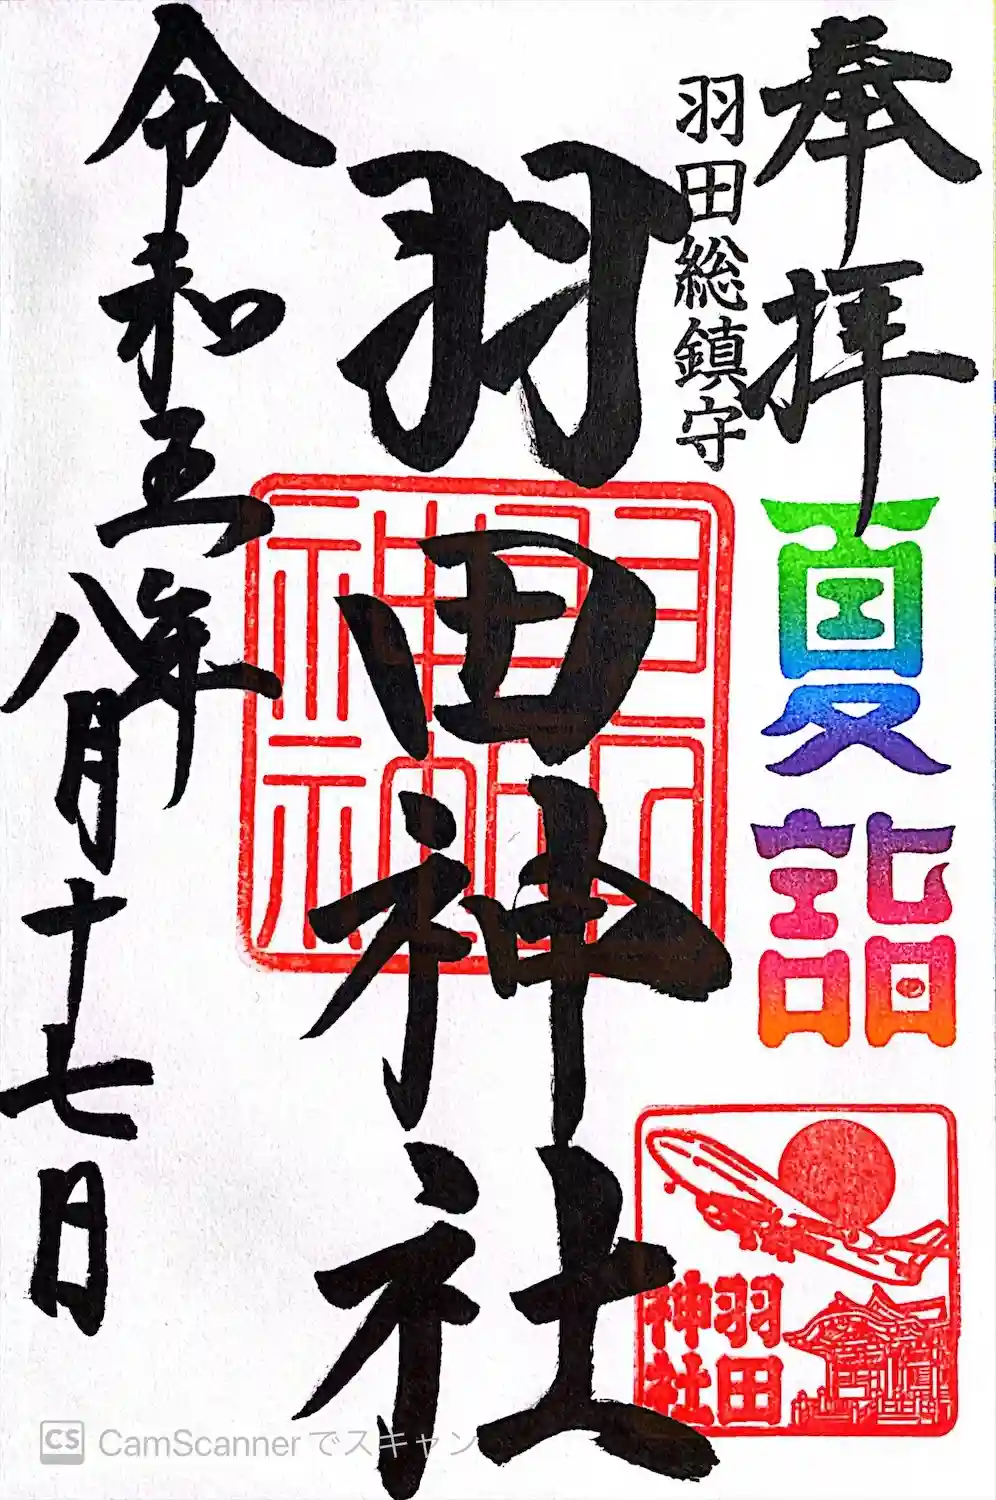 奉拝
羽田総鎮守
夏詣
羽田神社
羽田神社
羽田
神社
令和五年八月十七日
CS CamScannerでスキャン